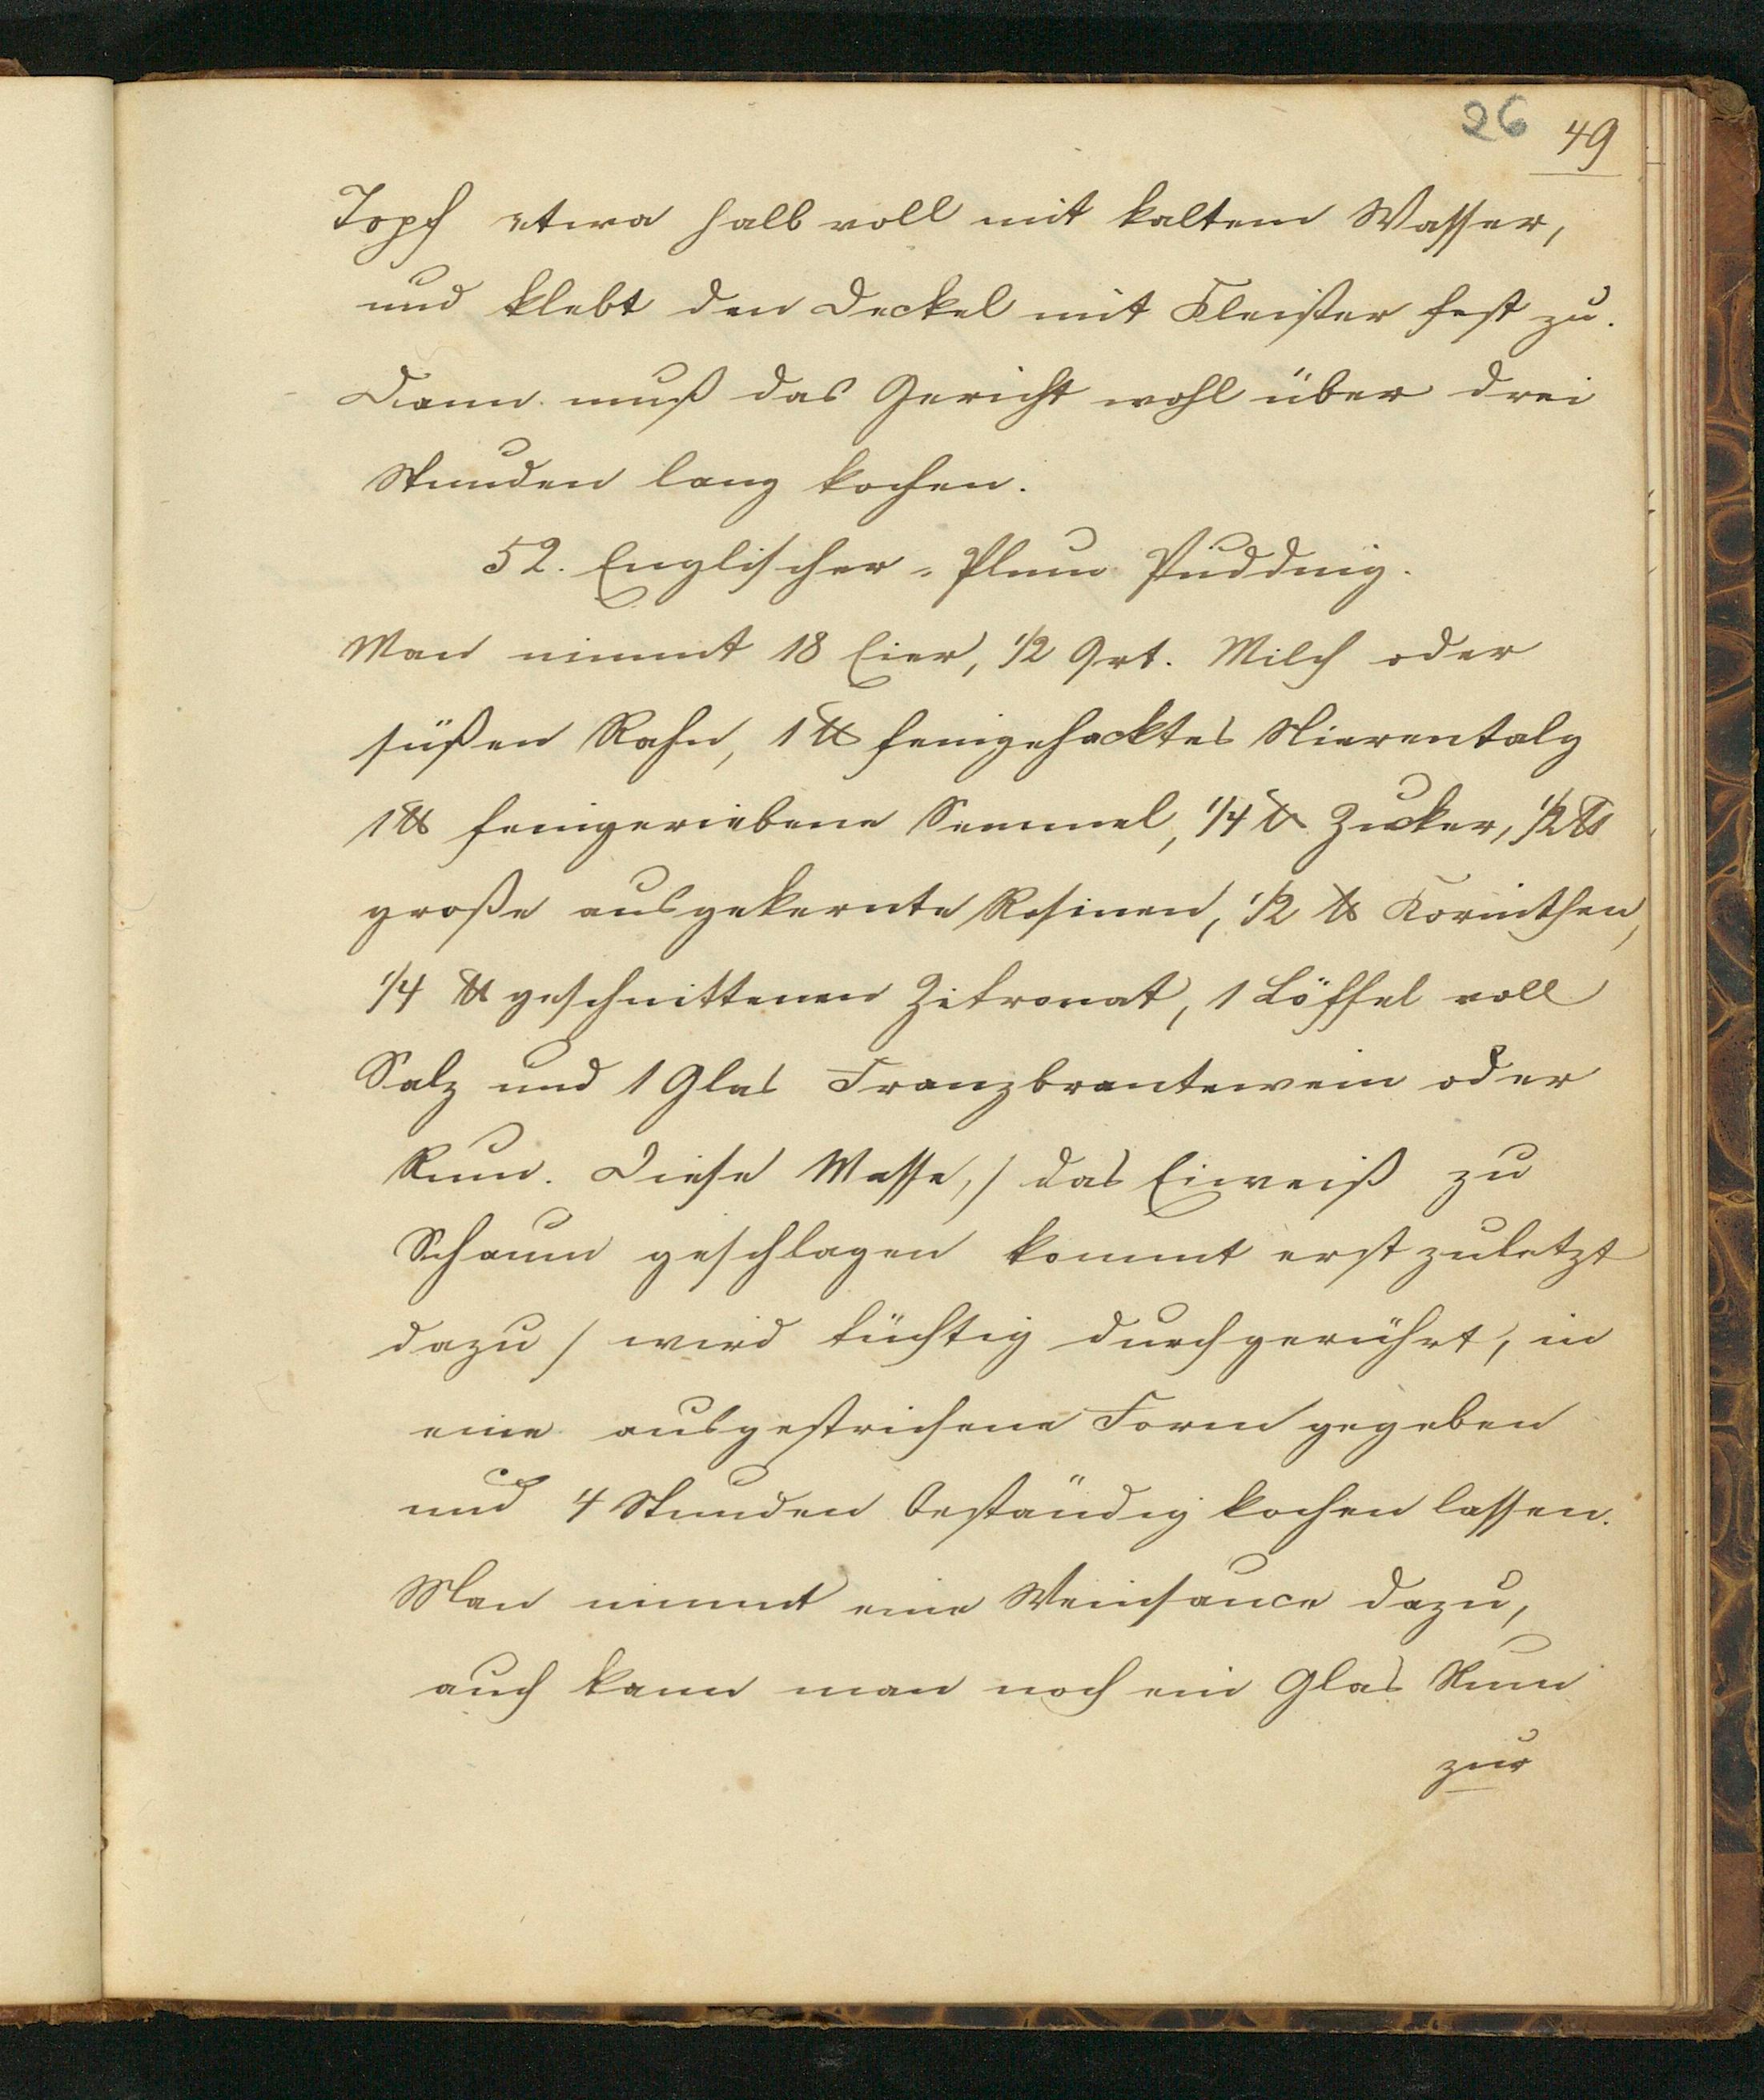 26 49
Topf etwa halb voll mit kaltem Wasser,
und klebt den Deckel mit Kleister fest zu.
Dann muß das Gericht wohl über drei
Stunden lang kochen.
52. Englischer-Plum Pudding.
Man nimmt 18 Eier, 1/2 Qrt. Milch oder
süßen Rahm, 1 ℔ feingehacktes Nierentalg
1 ℔ feingeriebene Semmel, 1/4 ℔ Zucker, 1/2 ℔
große ausgekernte Rosinen, 1/2 ℔ Korinthen,
1/4 ℔ geschnittenen Zitronat, 1 Löffel voll
Salz und 1 Glas Franzbrantewein oder
Rum. Diese Masse, / das Eiweiß zu
Schaum geschlagen kommt erst zuletzt
dazu / wird tüchtig durchgerührt, in
eine ausgestrichene Form gegeben
und 4 Stunden beständig kochen lassen.
Man nimmt eine Weinsauce dazu,
auch kann man noch ein Glas Rum
zur